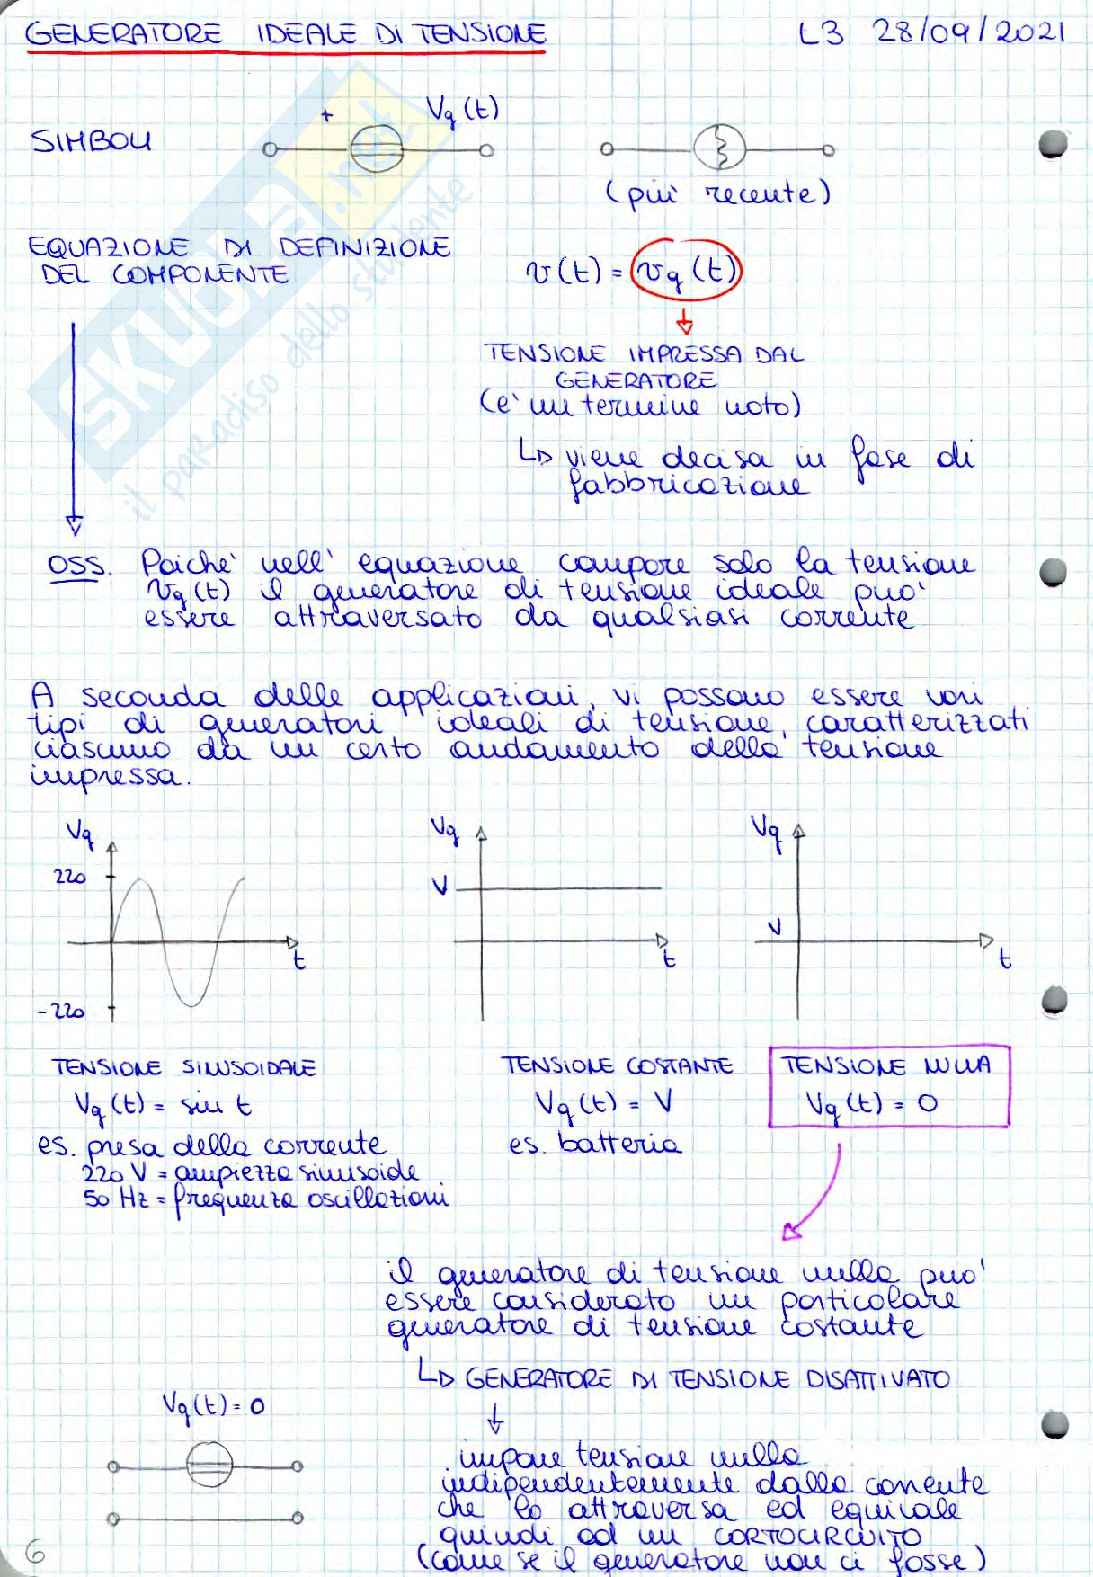 GENERATORE IDEALE DI TENSIONE
L3 28/09/2021
SIMBOLI
+
Vq(t)
(piu' recente)
EQUAZIONE DI DEFINIZIONE
DEL COMPONENTE
v(t) = vq(t)
TENSIONE IMPRESSA DAL
GENERATORE
(e' un termine noto)
viene decisa in fase di
fabbricazione
OSS. Poiche' nell' equazione compare solo la tensione
vq(t) il generatore di tensione ideale puo'
essere attraversato da qualsiasi corrente
A seconda delle applicazioni, vi possono essere vari
tipi di generatori ideali di tensione, caratterizzati
ciascuno da un certo andamento della tensione
impressa.
Vq
220
-220
t
Vq
V
t
Vq
V
t
TENSIONE SINUSOIDALE
Vq(t) = sin t
es. presa della corrente
220 V = ampiezza sinusoide
50 Hz = frequenza oscillazioni
TENSIONE COSTANTE
Vq(t) = V
es. batteria
TENSIONE NULLA
Vq(t) = 0
il generatore di tensione nulla puo'
essere considerato un particolare
generatore di tensione costante
GENERATORE DI TENSIONE DISATTIVATO
Vq(t) = 0
impone tensione nulla
indipendentemente dalla corrente
che lo attraversa ed equivale
quindi ad un CORTOCIRCUITO
(come se il generatore non ci fosse)
6
SKUOLA.net
il paradiso dello studente